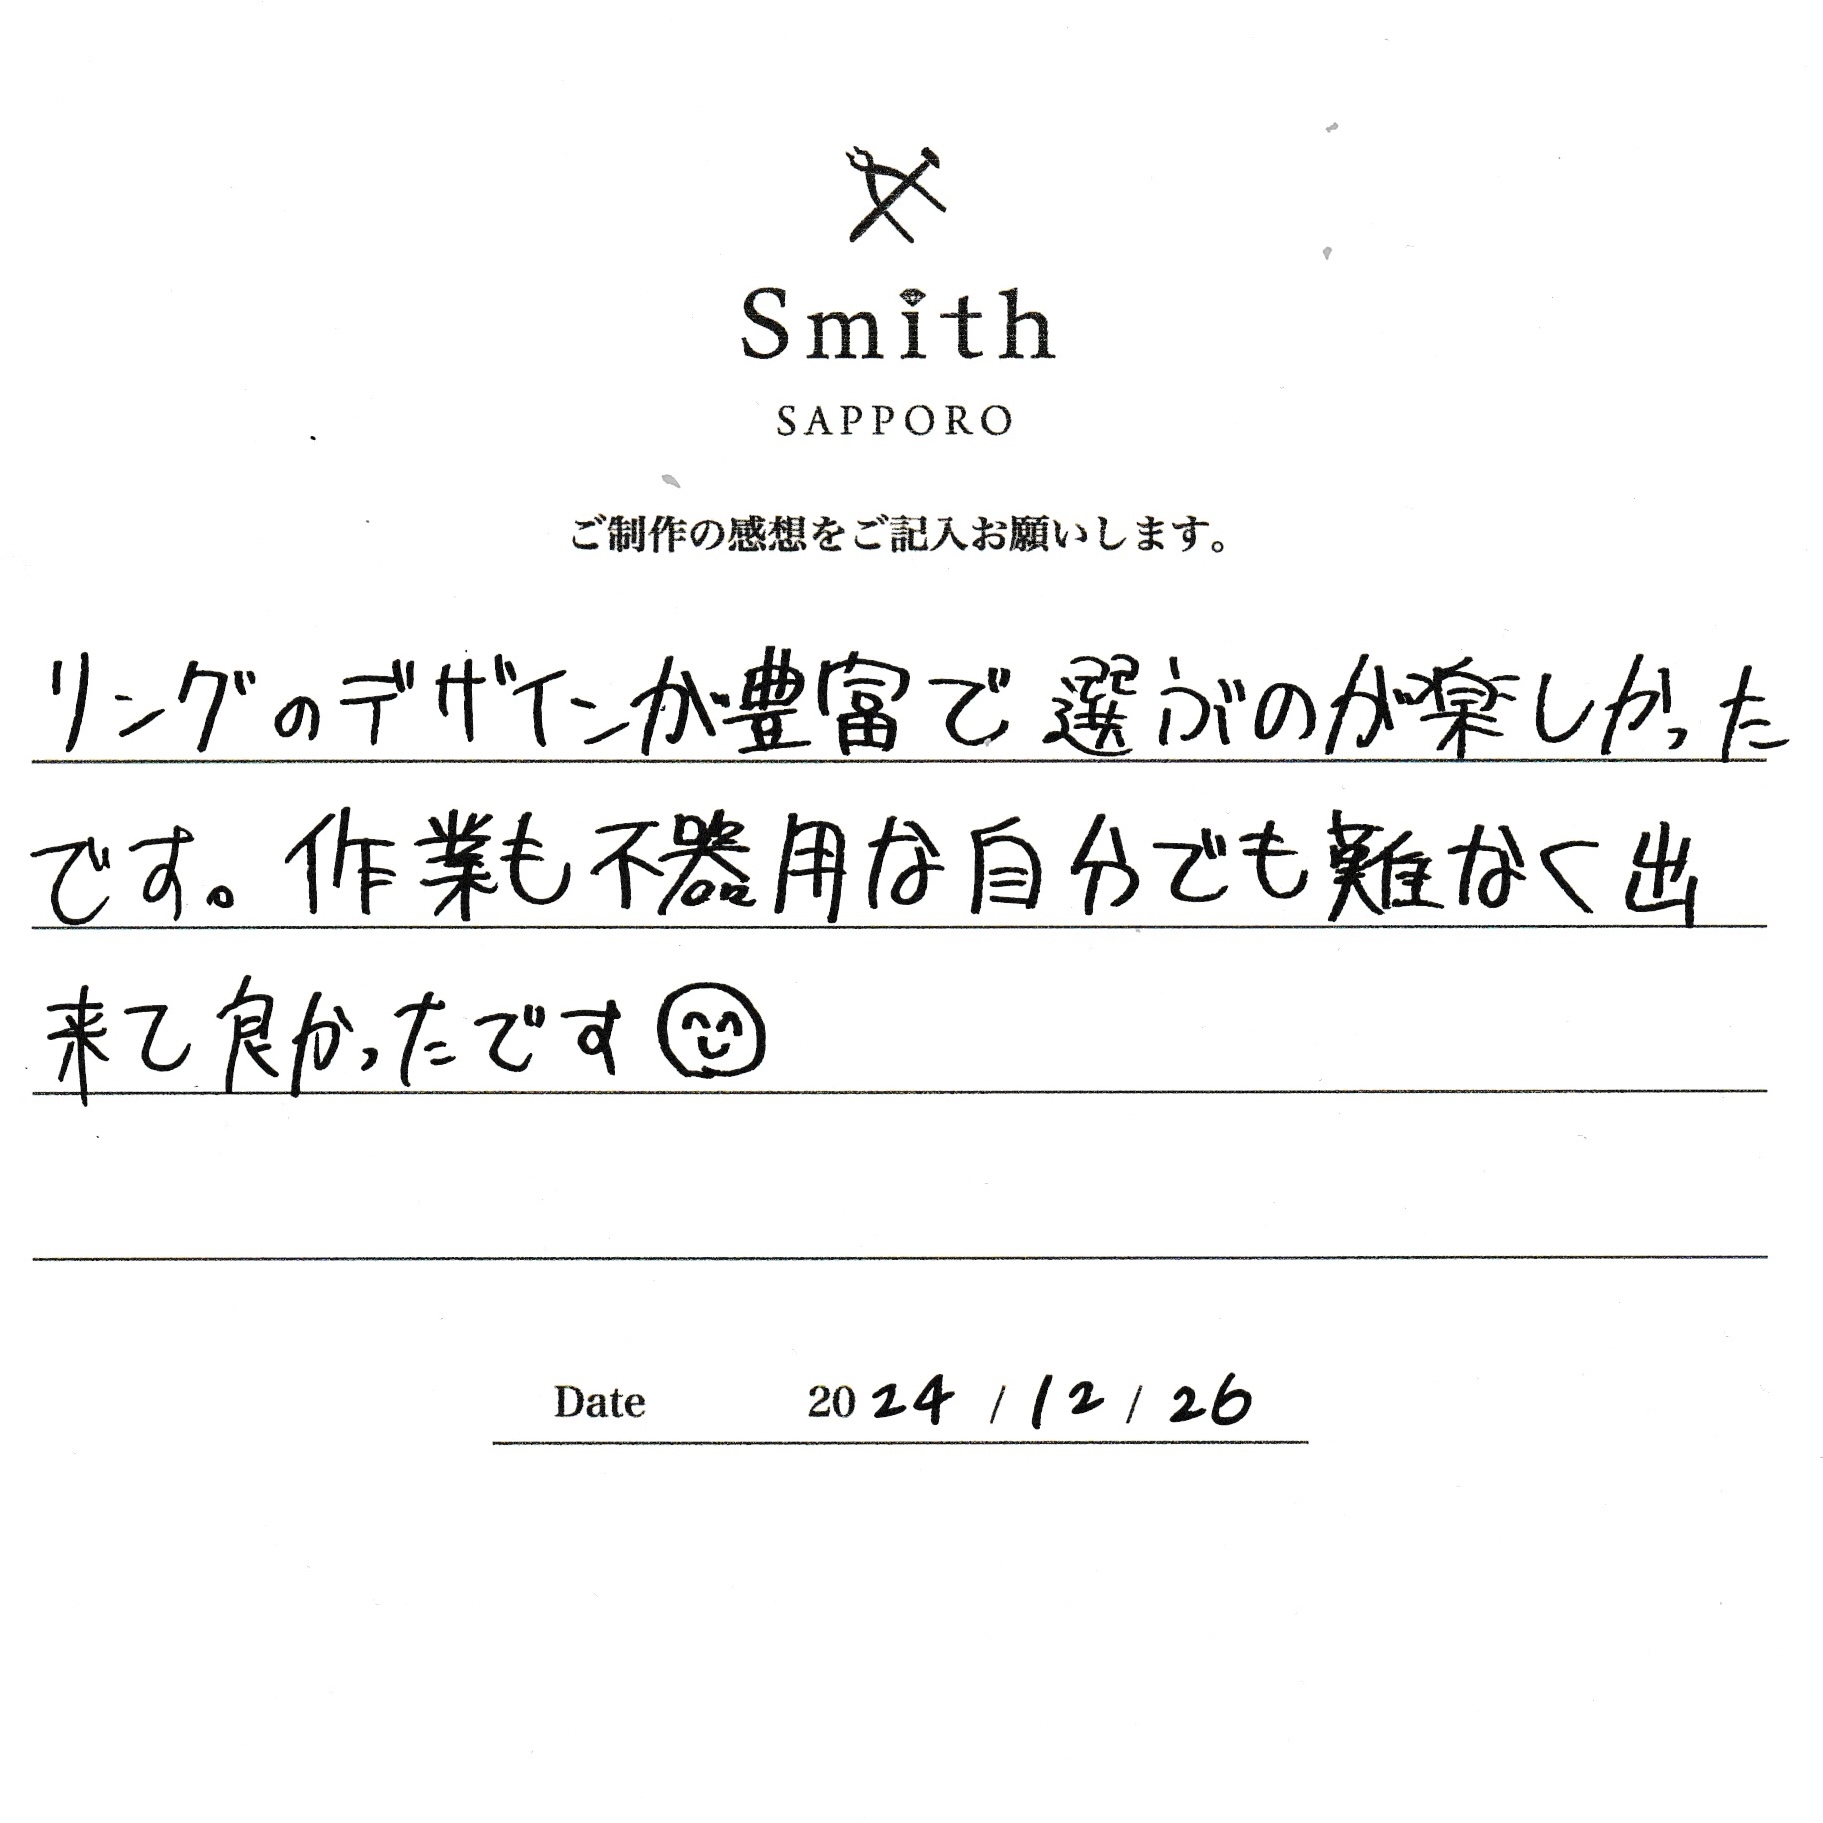 Smith
SAPPORO
ご制作の感想をご記入お願いします。
リングのデザインが豊富で選ぶのが楽しかった
です。作業も不器用な自分でも難なく出
来て良かったです
Date 2024 / 12 / 26